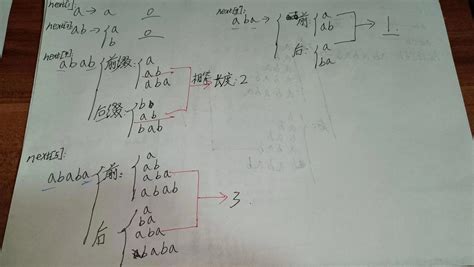 next[1] a → a 0
next[2] ab → a 0
b
next[3]:
aba → 前 a
ab
→ 1
后: a
ba
next[4]:
abab 前缀 a
ab
aba
相等长度: 2
后缀 b
ab
bab
next[5]:
ababa 前: a
ab
aba
abab
→ 3
后 a
ba
aba
baba